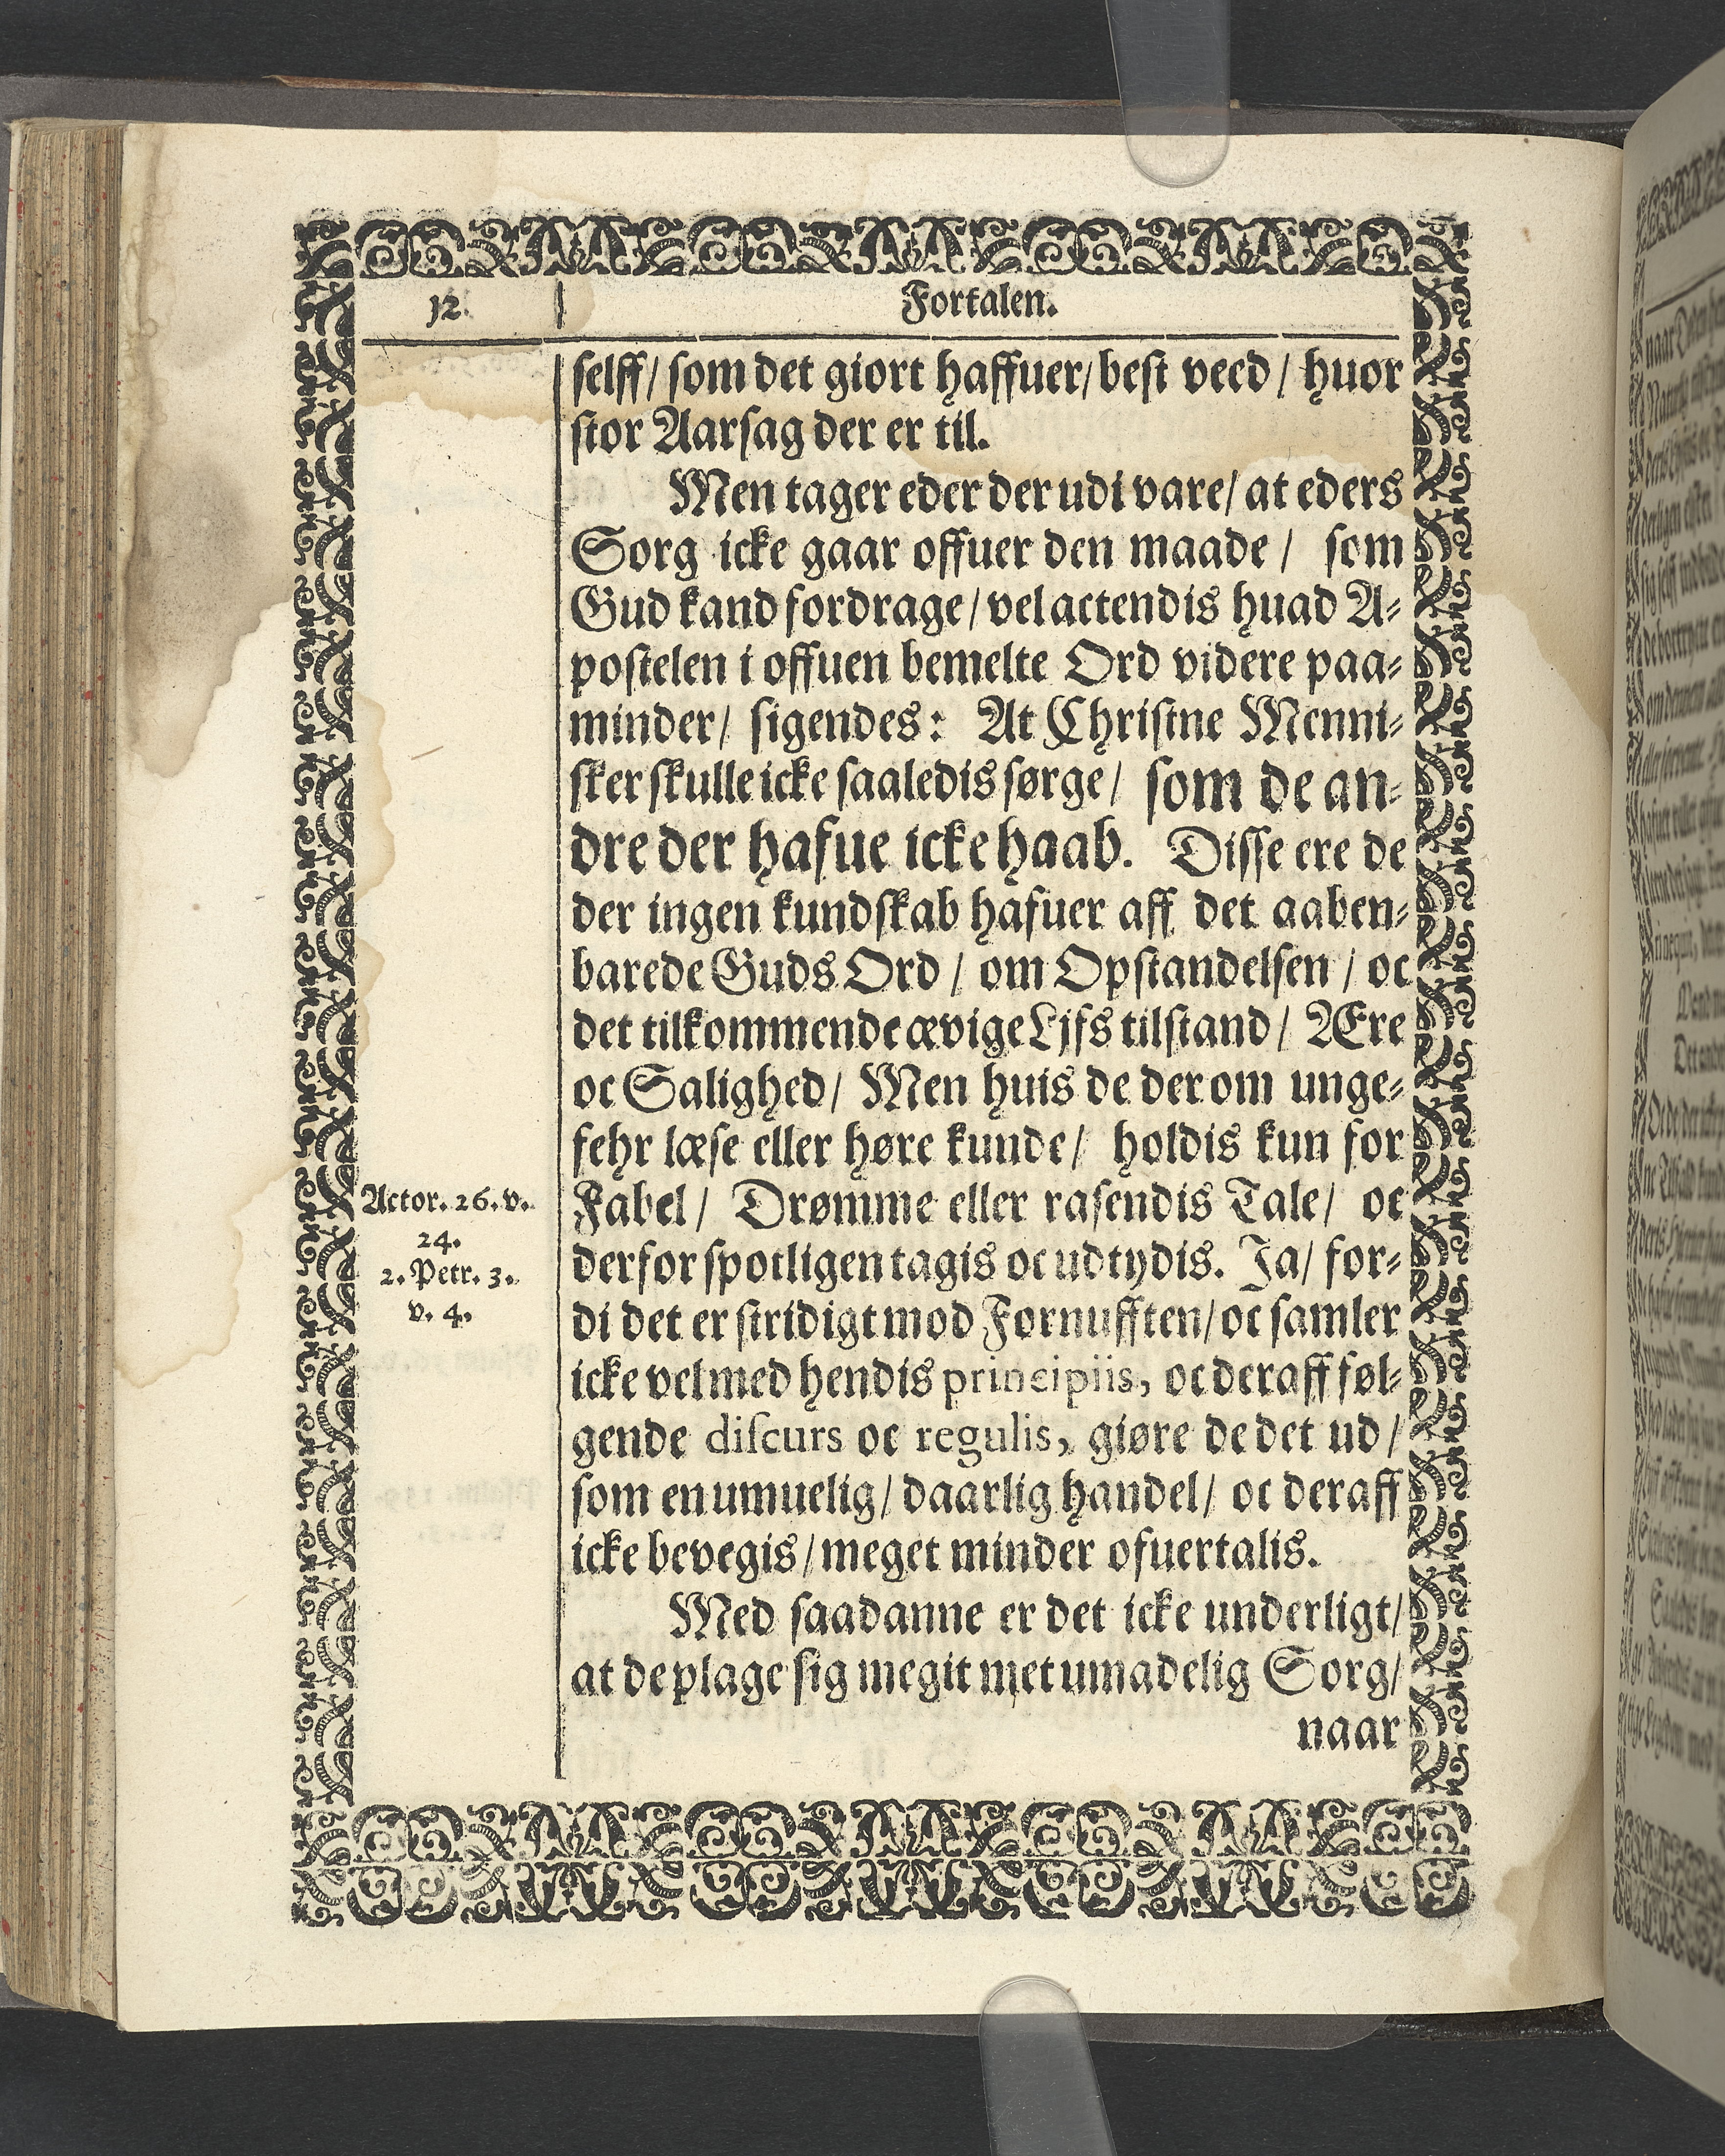 12.
Fortalen.
selff/ som det giort haffuer/ best veed / huor
stor Aarsag der er til.
Men tager eder der udi vare/ at eders
Sorg icke gaar offuer den maade / som
Gud kand fordrage/ vel actendis huad A-
postelen i offuen bemelte Ord videre paa-
minder/ sigendes: At Christne Menni-
sker skulle icke saaledis sørge/ som de an-
dre der hafue icke haab. Disse ere de
der ingen kundskab hafuer aff det aaben-
barede Guds Ord / om Opstandelsen / oc
det tilkommende ævige Ljfs tilstand/ Ære
oc Salighed/ Men huis de der om unge-
fehr læse eller høre kunde/ holdis kun for
Fabel/ Drømme eller rasendis Tale/ oc
derfor spotligen tagis oc udtydis. Ja/ for-
di det er stridigt mod Fornufften/ oc samler
icke vel med hendis principiis, oc deraff føl-
gende discurs oc regulis, giøre de det ud/
som en umuelig/ daarlig handel/ oc deraff
icke bevegis/ meget minder ofuertalis.
Med saadanne er det icke underligt/
at de plage sig megit met umadelig Sorg/
naar
Actor. 26. v.
24.
2. Petr. 3.
v. 4.